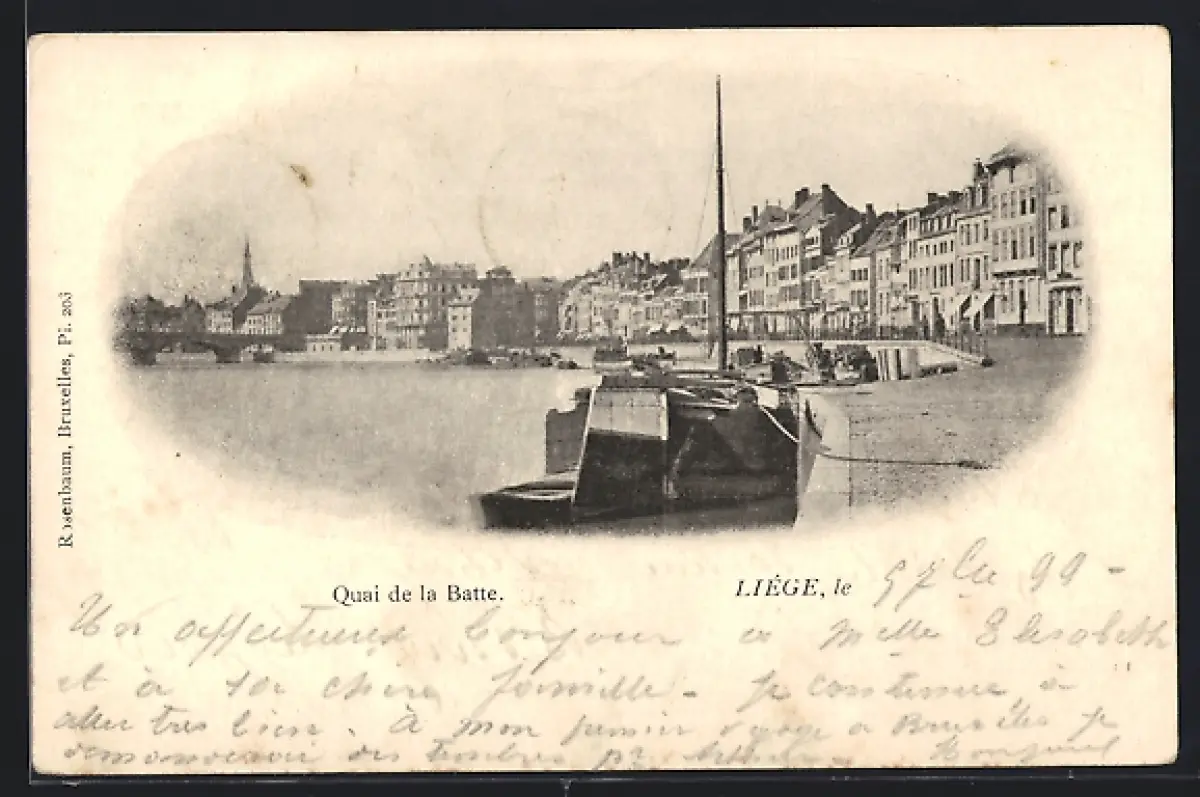 Rosenbaum, Bruxelles, Pi. 203
Quai de la Batte.
LIÉGE, le 97bre 99 -
Un affectueux bonjour à Melle Elisabeth
et à sa chère famille - Je continue à
aller très bien. à mon premier voyage à Bruxelles je
des timbres pr